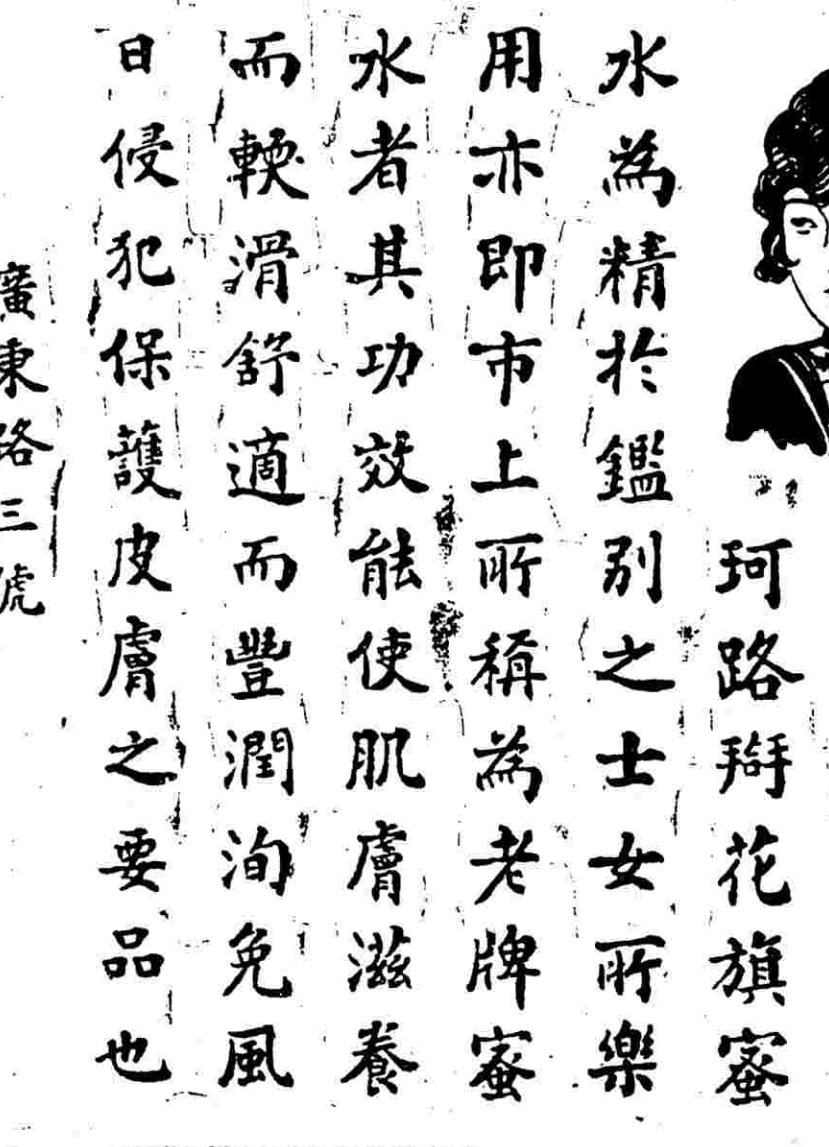 珂路搿花旗蜜
水為精於鑑别之士女所樂
用亦即市上所稱為老牌蜜
水者其功效能使肌膚滋養
而輭滑舒適而豐潤洵免風
日侵犯保護皮膚之要品也
廣東路三號